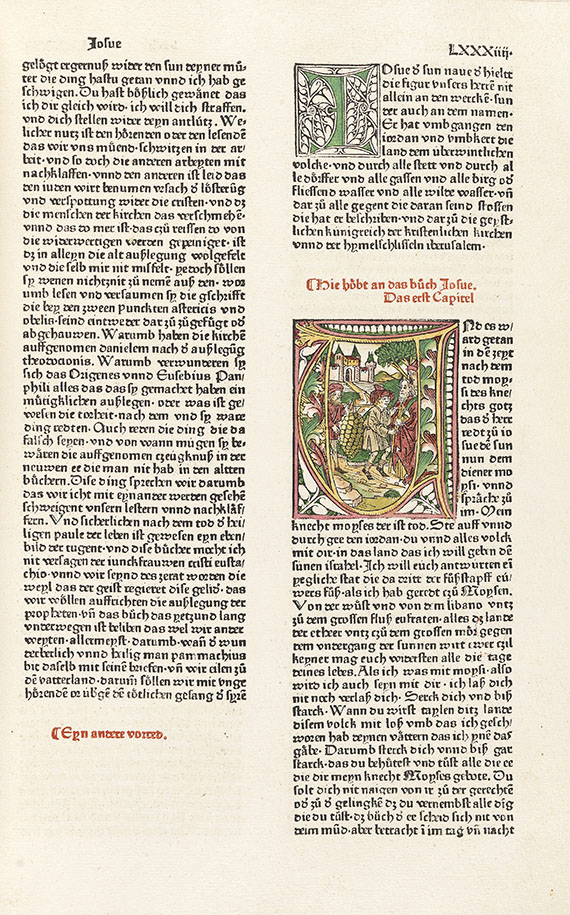 Josue
LXXXiiij.
gelögt ergernuß wider den sun deyner mů/
ter die ding hastu getan vnnd ich hab ge
schwigen. Du hast bößlich gewänet das
ich dir gleich wird. ich will dich straffen.
vnd dich stellen wider deyn antlütz. We/
licher nutz ist den hörenden oder den lesenden
das wir vns müend. schwitzen in der ar/
beit. vnd so doch die anderen arbeyten mit
nachklaffen. vnnd den anderen ist leid das
den iuden wirt benumen vrsach d̕ lösterūg
vnd verspottung wider die cristen. vnd dz
die menschen der kirchen das verschmehē.
vnnd das do mer ist. das czů reissen do von
die widerwertigen werden gepeiniget. ist
dz in alleyn die alt außlegung wolgefelt
vnd die selb mir nit missfelt. yedoch söllen
sy wenen nichtznit zů nemē auß den. wor
umb lesen vnd versaumen sy die gschrifft
die bey den zween punckten astericis vnd
obelis. seind eintweder dar zů zůgefügt od̕
abgehauwen. Warumb haben die kirchē
auffgenomen danielem nach d̕ außlegūg
theodocionis. Warumb verwunderen sy
sich das Origenes vnnd Eusebius Pan/
phili alles das das sy gemachet haben ein
mütigklichen außlegen. oder was ist ge/
wesen die torheit. nach dem vnd sy ware
ding redten. Auch reden die ding die da
falsch seyen. vnd von wann mügen sy be/
wären die auffgenomen czeügknuß in der
neuwen ee die man nit hab in den altten
büchern. Dise ding sprechen wir darumb
das wir icht mit eynander werden gesehē
schweigent vnsern lestern vnnd nachkläf/
fern. Vnd sicherlichen nach dem tod d̕ hei/
ligen paule der leben ist gewesen eyn eben/
bild der tugent. vnd dise bücher mocht ich
nit versagen der iunckfrauwen cristi eusta/
chio. vnnd wir seynd des zerat worden die
weyl das der geist regieret dise gelid. das
wir wöllen auffrichten die außlegung der
propheten. vn̄ das bůch das yetzund lang
vnderwegen ist beliben das wel wir ander
weyten. allermeyst. darumb. wañ d̕ wun
derberlich vnnd heilig man pammachius
bit daselb mit seinē briefen. vn̄ wir eilen zů
dē vatterland. darum̄ söllen wir mit vnge
hörendē or übgē dē tötlichen gesang d̕ syrē
Eyn andere vorred.
IOsue d̕ sun naue d̕ hielte
die figur vnsers herrē nit
allein an den wercke. sun
der auch an dem namen.
Er hat vmbgangen den
iordan vnd vmbkert die
land dem überwintlichen
volcke. vnd durch alle stett vnd durch al
le dörffer vnd alle gassen vnd alle birg od̕
fliessend wasser vnd alle wilde wasser. vn̄
dar zů alle gegent die daran seind stossen
die hat er beschriben. vnd dar zů die geyst/
lichen künigreich der kristenlichen kirchen
vnnd der hymelschlisseln iherusalem.
Hie höbt an das bůch Josue.
Das erst Capitel
VNd es w/
ard getan
in dē zeyt
nach dem
tod moy/
si des kne/
chts gotz
das d̕ herr
redt zů io
sue dē sun
nun dem
diener mo
ysi. vnnd
sprache zů
im. Mein
knecht moyses der ist tod. Ste auff vnnd
durch gee den iordan. du vnnd alles volck
mit dir. in das land das ich will geben dē
sunen israhel. Ich will euch antwurten eī
yegliche stat die da dritt der füßstapff eü/
wers füß. als ich hab geredt czů Moysen.
Von der wüst vnd von dem libano vntz
zů dem grossen fluß eufraten. alles dz lande
der etheer vntz czů dem grossen mör gegen
dem vndergang der sunnen wirt ewer czil
keyner mag euch widersten alle die tage
deines lebens. Als ich was mit moysi. also
wird ich auch seyn mit dir. ich laß dich
nit noch verlaß dich. Sterck dich vnd biß
starck. Wann du wirst taylen ditz lande
disem volck mit loß vmb das ich gesch/
woren hab deynen vättern das ich ynē das
gäbe. Darumb sterck dich vnnd biß gar
starck. das du behütest vnd tüst alle die ee
die dir meyn knecht Moyses gebote. Du
solt dich nit naigen von ir zů der gerechtē
od̕ zů d̕ gelingkē dz du vernembst alle dīg
die du tůst. dz bůch d̕ ee scheid sich nit von
deim mūd. aber betracht ī im tag vn̄ nacht